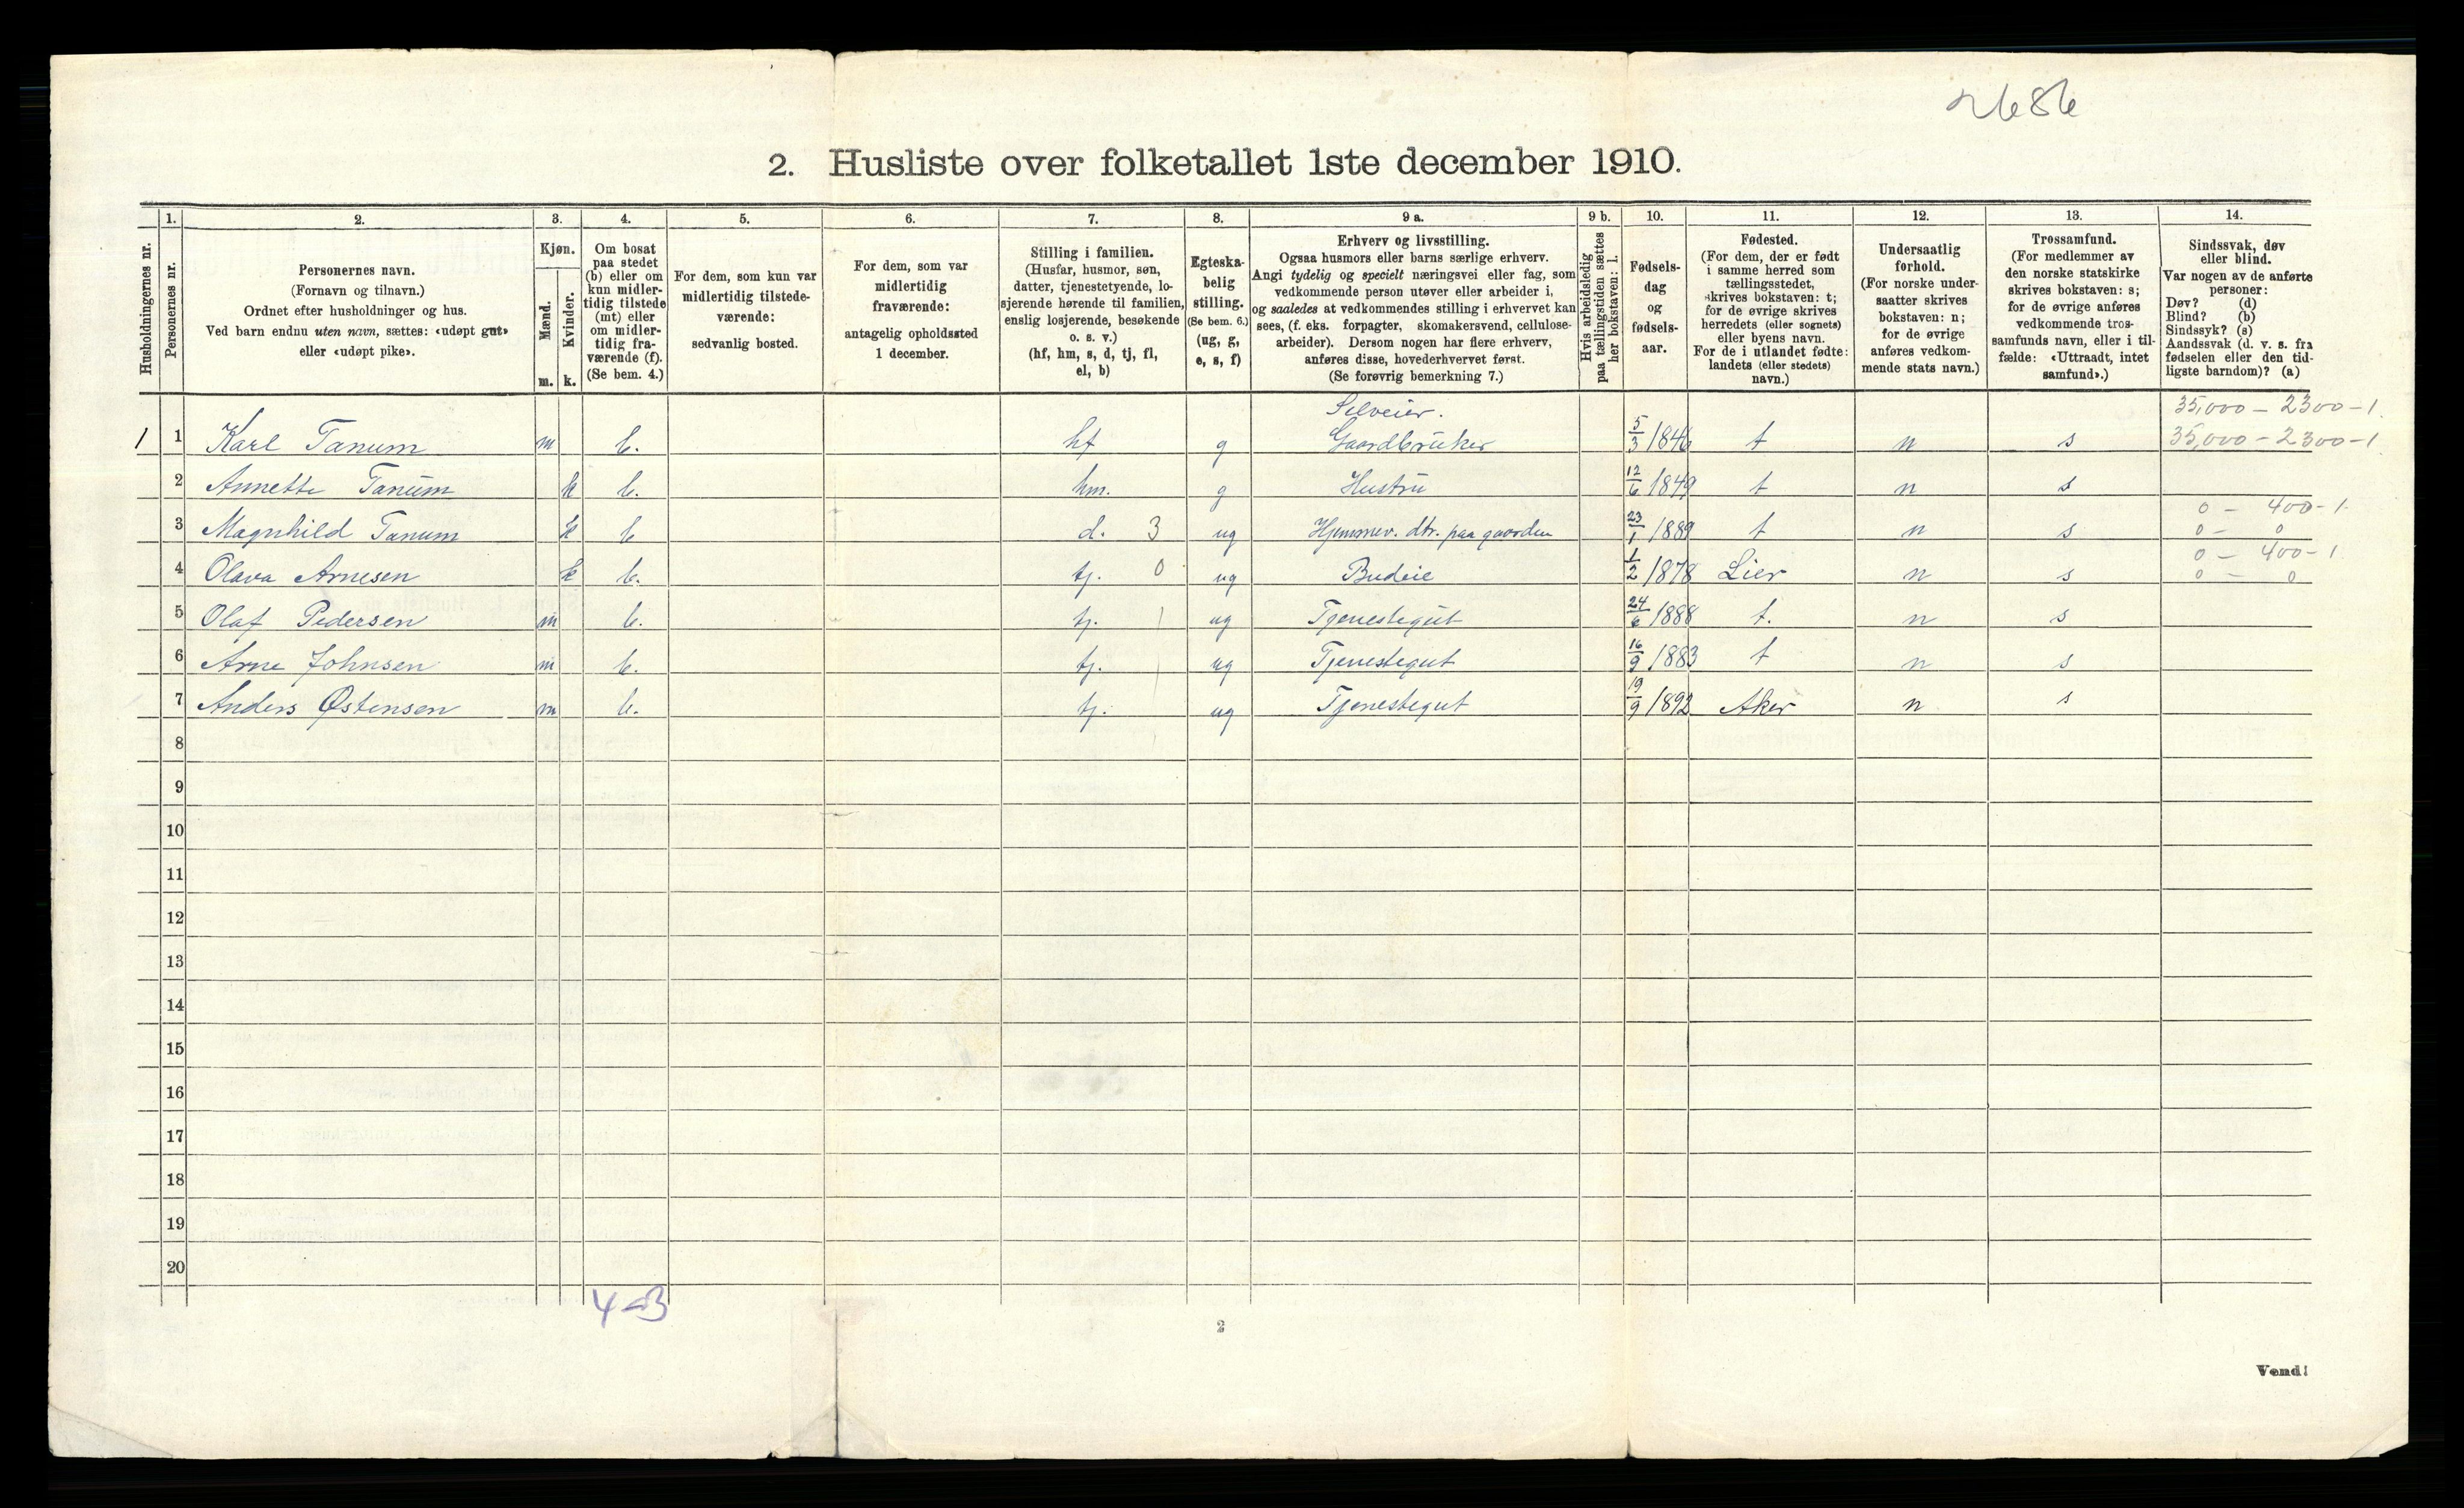 2686
2. Husliste over folketallet 1ste december 1910.
Husholdningernes nr.
1.
Personernes nr.
2.
Personernes navn.
(Fornavn og tilnavn.)
Ordnet efter husholdninger og hus.
Ved barn endnu uten navn, sættes: «udøpt gut»
eller «udøpt pike».
3.
Kjøn.
Mænd.
m.
Kvinder.
k.
4.
Om bosat
paa stedet
(b) eller om
kun midler-
tidig tilstede
(mt) eller
om midler-
tidig fra-
værende (f).
(Se bem. 4.)
5.
For dem, som kun var
midlertidig tilstede-
værende:
sedvanlig bosted.
6.
For dem, som var
midlertidig
fraværende:
antagelig opholdssted
1 december.
7.
Stilling i familien.
(Husfar, husmor, søn,
datter, tjenestetyende, lo-
sjerende hørende til familien,
enslig losjerende, besøkende
o. s. v.)
(hf, hm, s, d, tj, fl,
el, b)
8.
Egteska-
belig
stilling.
(Se bem. 6.)
(ug, g,
e, s, f)
9 a.
Erhverv og livsstilling.
Ogsaa husmors eller barns særlige erhverv.
Angi tydelig og specielt næringsvei eller fag, som
vedkommende person utøver eller arbeider i,
og saaledes at vedkommendes stilling i erhvervet kan
sees, (f. eks. forpagter, skomakersvend, cellulose-
arbeider). Dersom nogen har flere erhverv,
anføres disse, hovederhvervet først.
(Se forøvrig bemerkning 7.)
9 b.
Hvis arbeidsledig
paa tællingstiden sættes
her bokstaven: l.
10.
Fødsels-
dag
og
fødsels-
aar.
11.
Fødested.
(For dem, der er født
i samme herred som
tællingsstedet,
skrives bokstaven: t;
for de øvrige skrives
herredets (eller sognets)
eller byens navn.
For de i utlandet fødte:
landets (eller stedets)
navn.)
12.
Undersaatlig
forhold.
(For norske under-
saatter skrives
bokstaven: n;
for de øvrige
anføres vedkom-
mende stats navn.)
13.
Trossamfund.
(For medlemmer av
den norske statskirke
skrives bokstaven: s;
for de øvrige anføres
vedkommende tros-
samfunds navn, eller i til-
fælde: «Uttraadt, intet
samfund».)
14.
Sindssvak, døv
eller blind.
Var nogen av de anførte
personer:
Døv? (d)
Blind? (b)
Sindssyk? (s)
Aandssvak (d. v. s. fra
fødselen eller den tid-
ligste barndom)? (a)
Selveier. 35,000 – 2300 – 1.
1 1 Karl Tanum m b. hf g Gaardbruker 5/3 1846 t n s 35,000 – 2300 – 1
2 Annette Tanum k b. hm. g Hustru 12/6 1849 t n s
0 – 400 – 1.
3 Magnhild Tanum k b d. 3 ug Hjemmev. dtr. paa gaarden 23/1 1889 t n s 0 – 0
0 – 400 – 1
4 Olava Arnesen k b. tj. 0 ug Budeie 1/2 1878 Lier n s 0 – 0
5 Olaf Pedersen m b. tj. 1 ug Tjenestegut 24/6 1888 t. n s
6 Arne Johnsen m b. tj. ug Tjenestegut 16/9 1883 t n s
7 Anders Østensen m b. tj. ug Tjenestegut 19/9 1892 Aker n s
8
9
10
11
12
13
14
15
16
17
18
19
20
4–3
2
Vend!